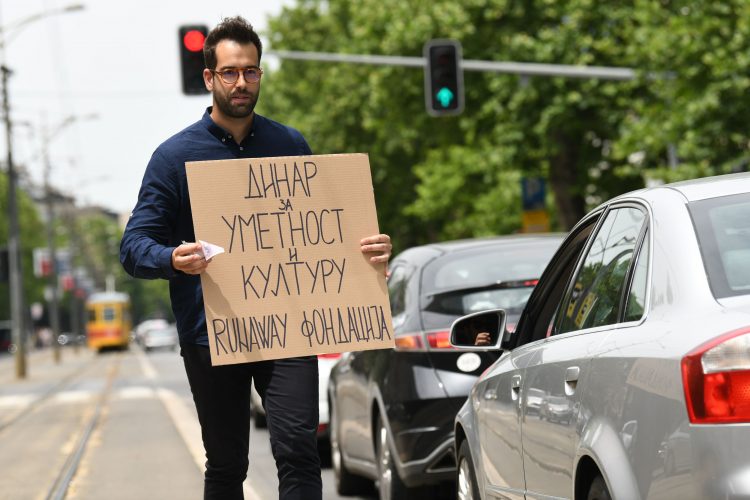 ДИНАР
ЗА
УМЕТНОСТ
И
КУЛТУРУ
RUNAWAY ФОНДАЦИЈА